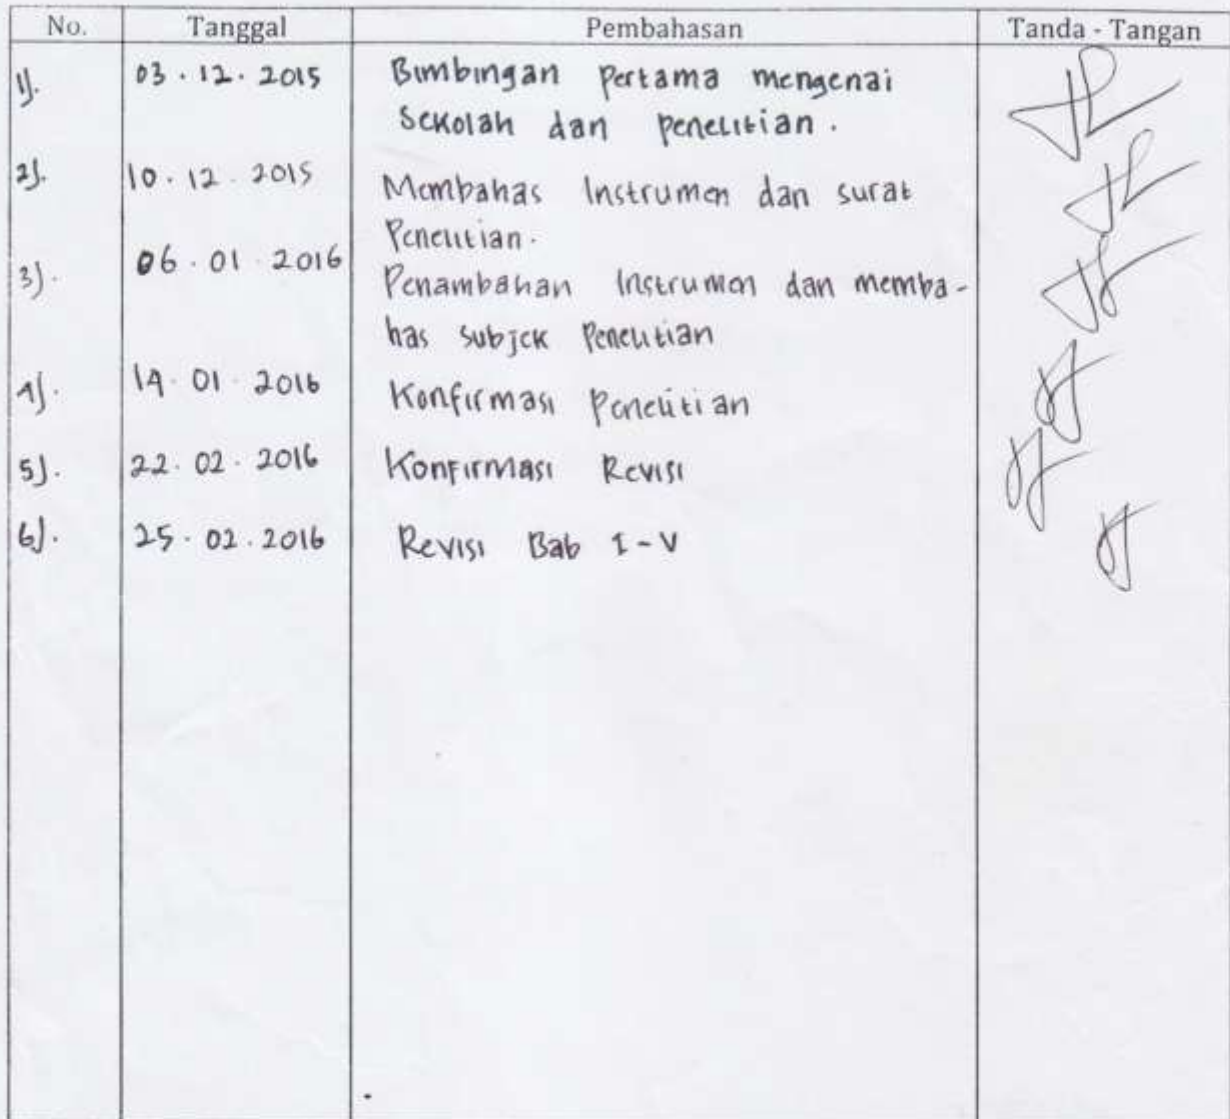 No. Tanggal Pembahasan Tanda - Tangan
1). 03.12.2015 Bimbingan Pertama mengenai
Sekolah dan penelitian.
2). 10.12.2015 Membahas Instrumen dan surat
Penelitian.
3). 06.01.2016 Penambahan Instrumen dan memba-
has subjek Penelitian
4). 14.01.2016 Konfirmasi Penelitian
5). 22.02.2016 Konfirmasi Revisi
6). 25.02.2016 Revisi Bab I-V